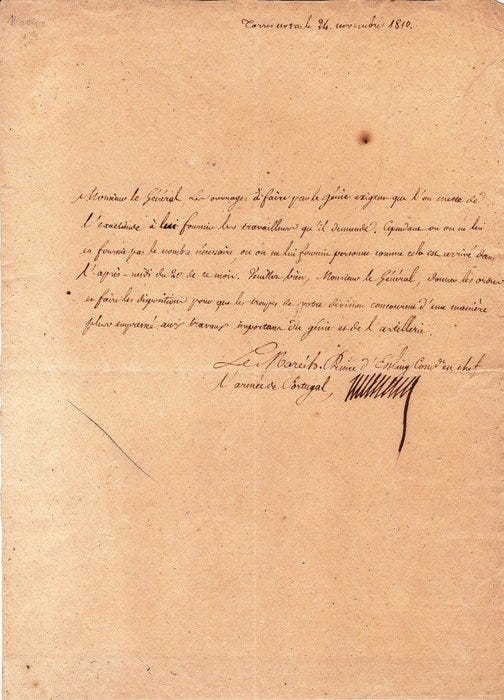 Torresnovas le 24. novembre 1810.
Monsieur le Général, Les ouvrages à faire par le génie exigent que l'on mette de
l'exactitude à lui fournir les travailleurs qu'il demande. Cependant on on ne lui
en fournit pas le nombre nécessaire ou on ne lui fournit personne comme cela est arrivé dans
l'après-midi du 20 de ce mois. Veuillez bien, Monsieur le Général, donner les ordres
en faire les dispositions pour que les troupes de votre division concourent d'une manière
plus empressée aux travaux importans du génie et de l'artillerie.
Le Maréch. Prince d'Essling Comdt en chef
l'armée de Portugal,